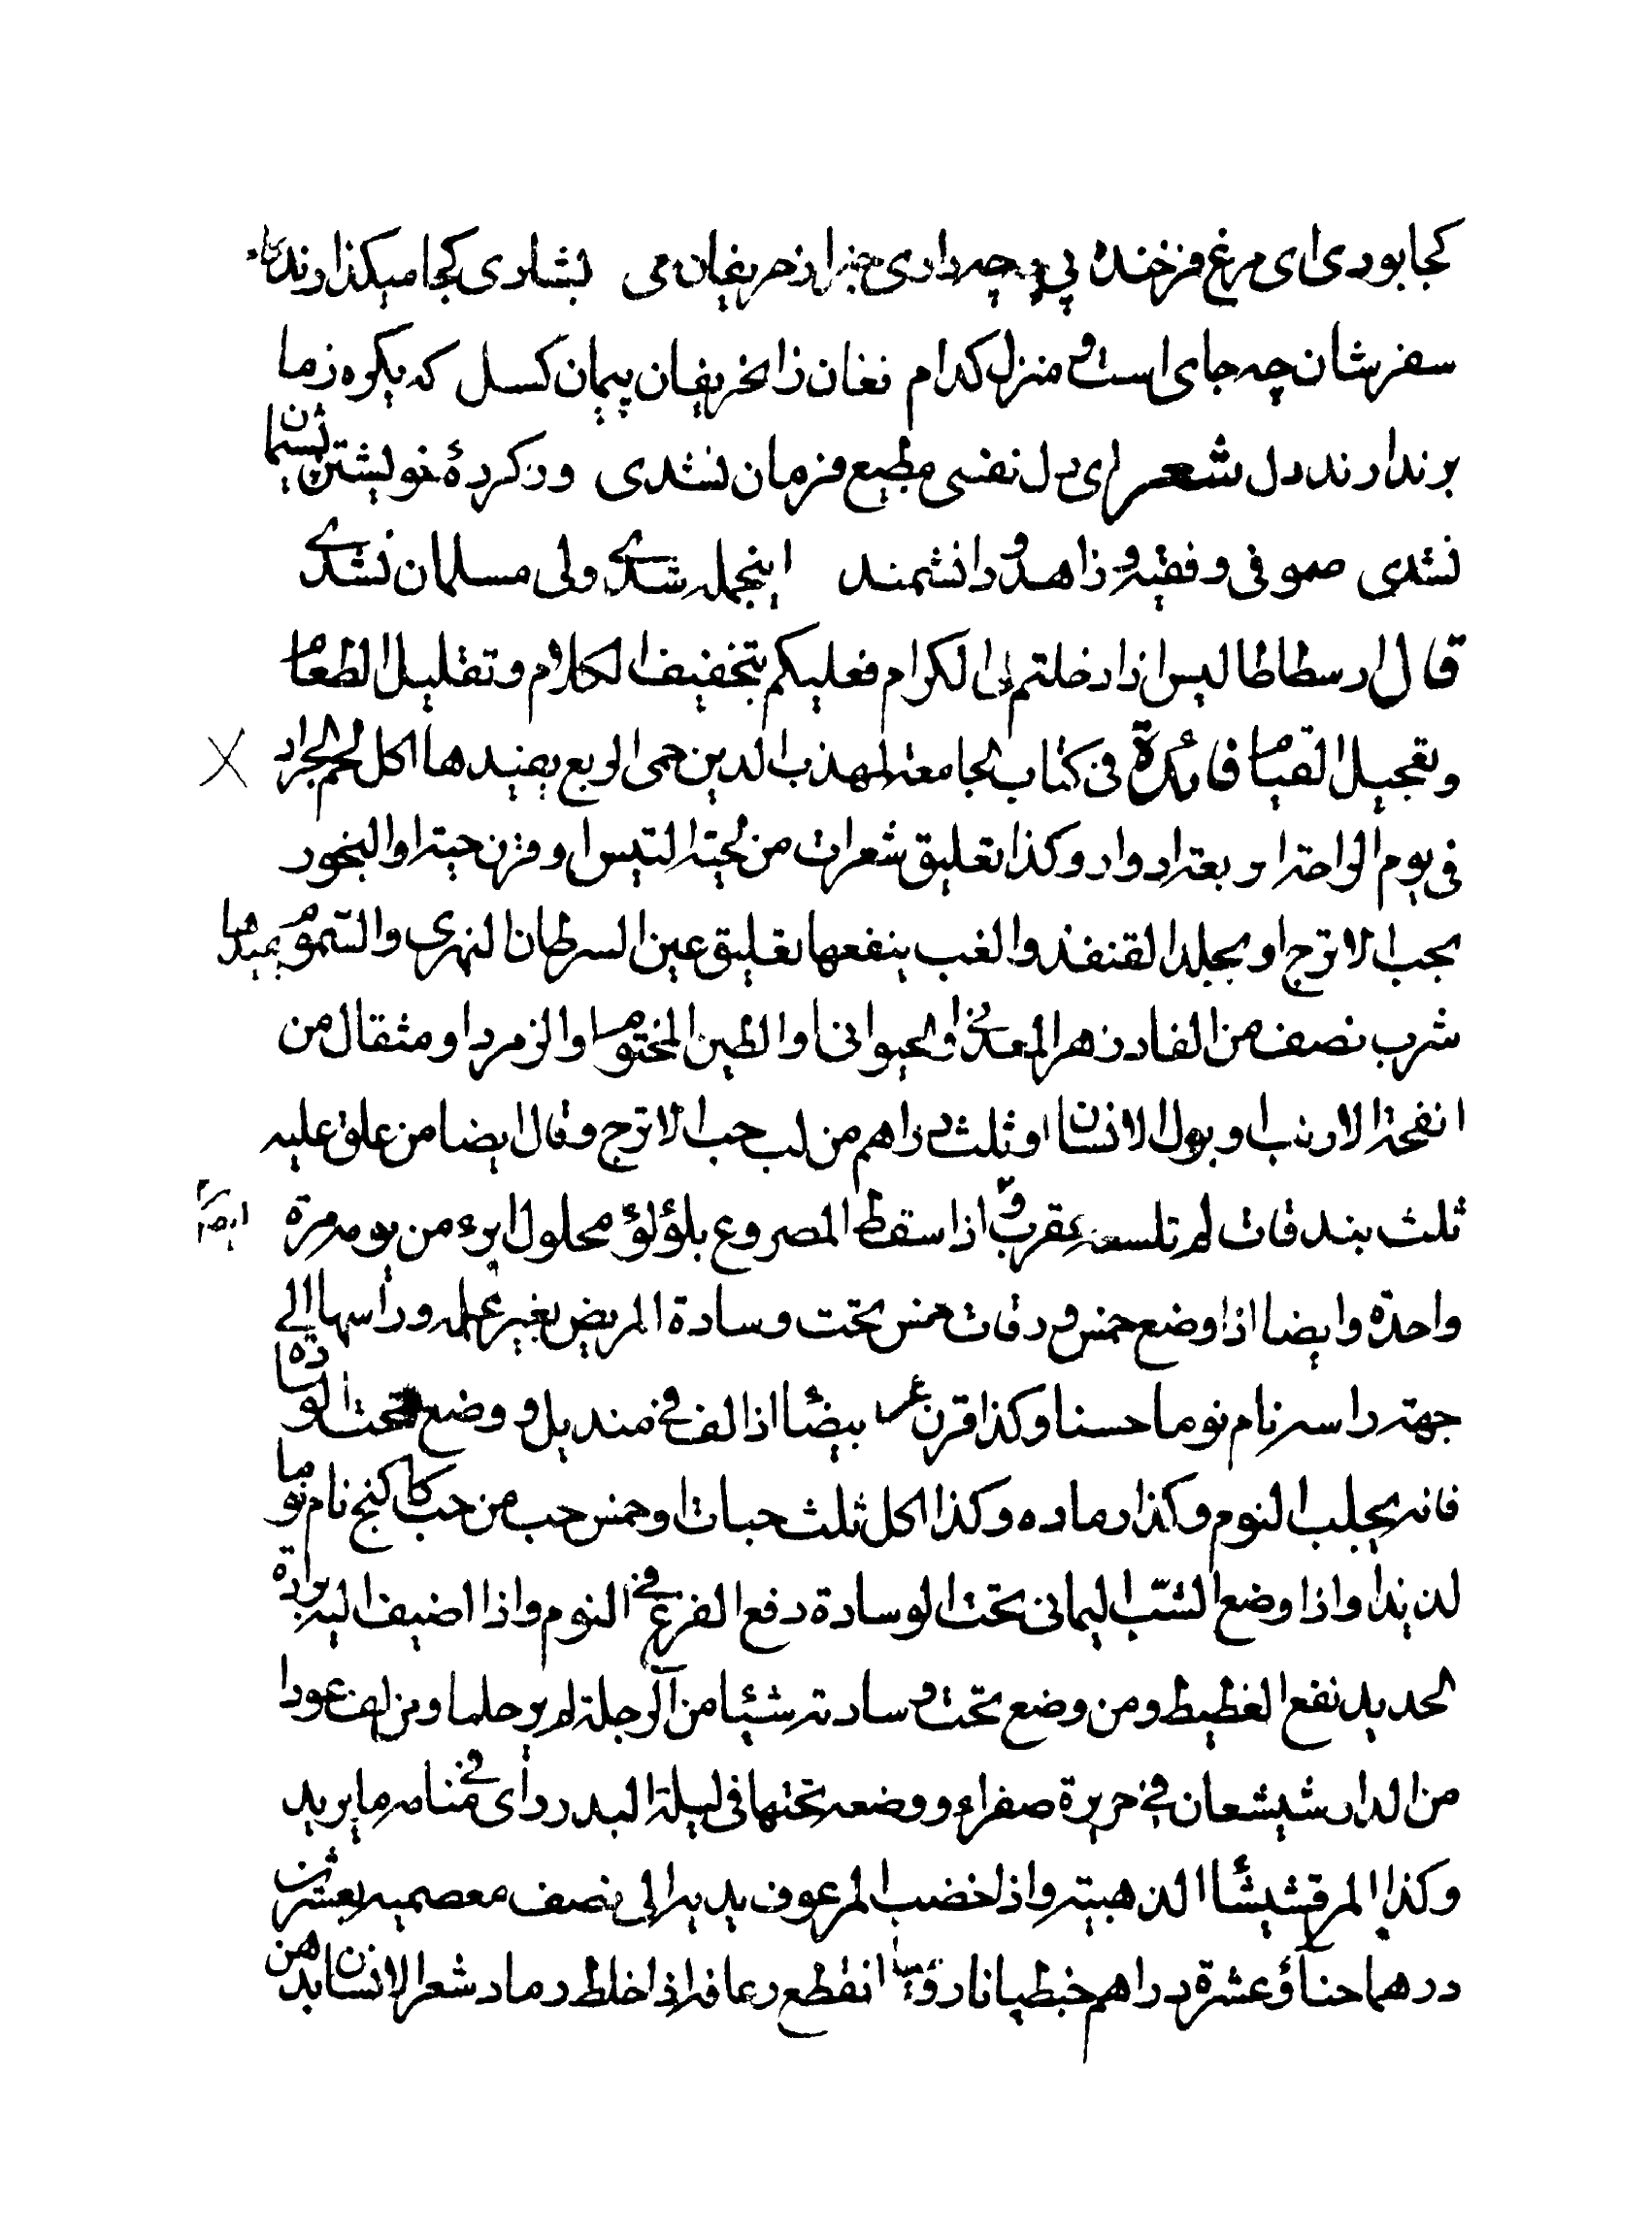 کجا بودی ای مرغ فرخنده پی چه داری خبر از حریفان می بشادی کجا میگذارند گام
سفرشان چه جای است و منزل کدام فغان زانحریفان پیمان گسل که یکره ز ما
برندارند دل شعر ای دل نفسی مطیع فرمان نشدی وز کردهٔ خویشتن پشیمان
نشدی صوفی و فقیه و زاهد و دانشمند اینجمله شدی ولی مسلمان نشدی
قال ارسطاطالیس اذا دخلتم الی الکرام فعلیکم بتخفیف الکلام و تقلیل الطعام
وتعجیل القیام فائدة فی کتاب الجامعة لمهذب الدین حمی الربع یفیدها اکل لحم الجراد
فی یوم الواحد اربعة ادوار وکذا تعلیق شعرات من لحیة التیس او قرن حیة او البخور
بحب الاترج او بجلد القنفذ والغب ینفعها تعلیق عین السرطان النهری والسموم یبیدها
شرب نصف من الفادزهر المعدنی او الحیوانی او الطین المختوم او الزمرد او مثقال من
انفحة الارنب او بول الانسان او ثلث دراهم من لب حب الاترج وقال ایضا من علق علیه
ثلث بندقات لم تلسعه عقرب و اذا سقط المصروع بلؤلؤ محلول ابرء من یومه مرة
واحدة وایضا اذا وضع خمس ورقات خس تحت وسادة المریض بغیر علمه ورأسها الی
جهة رأسه نام نوما حسنا وکذا قرن بیضا اذا لف فی مندیل و وضع تحت الوسادة
فانه یجلب النوم وکذا رماده وکذا اکل ثلث حبات او خمس حب من حب کاکنج نام نوما
لذیذا واذا وضع الشب الیمانی تحت الوسادة دفع الفزع فی النوم واذا اضیف الیه برادة
الحدید نفع الغطیط ومن وضع تحت وسادته شیئا من الرجلة لم یر حلما ومن لف عودا
من الدارشیشعان فی حریرة صفراء ووضعه تحتها فی لیلة البدر رأی فی منامه ما یرید
وکذا المرقشیشا الذهبیة واذا خضب المرعوف یدیه الی نصف معصمیه بعشرین
درهما حناؤ عشرة دراهم انقطع رعافه اذا خلط رماد شعر الانسان بدهن